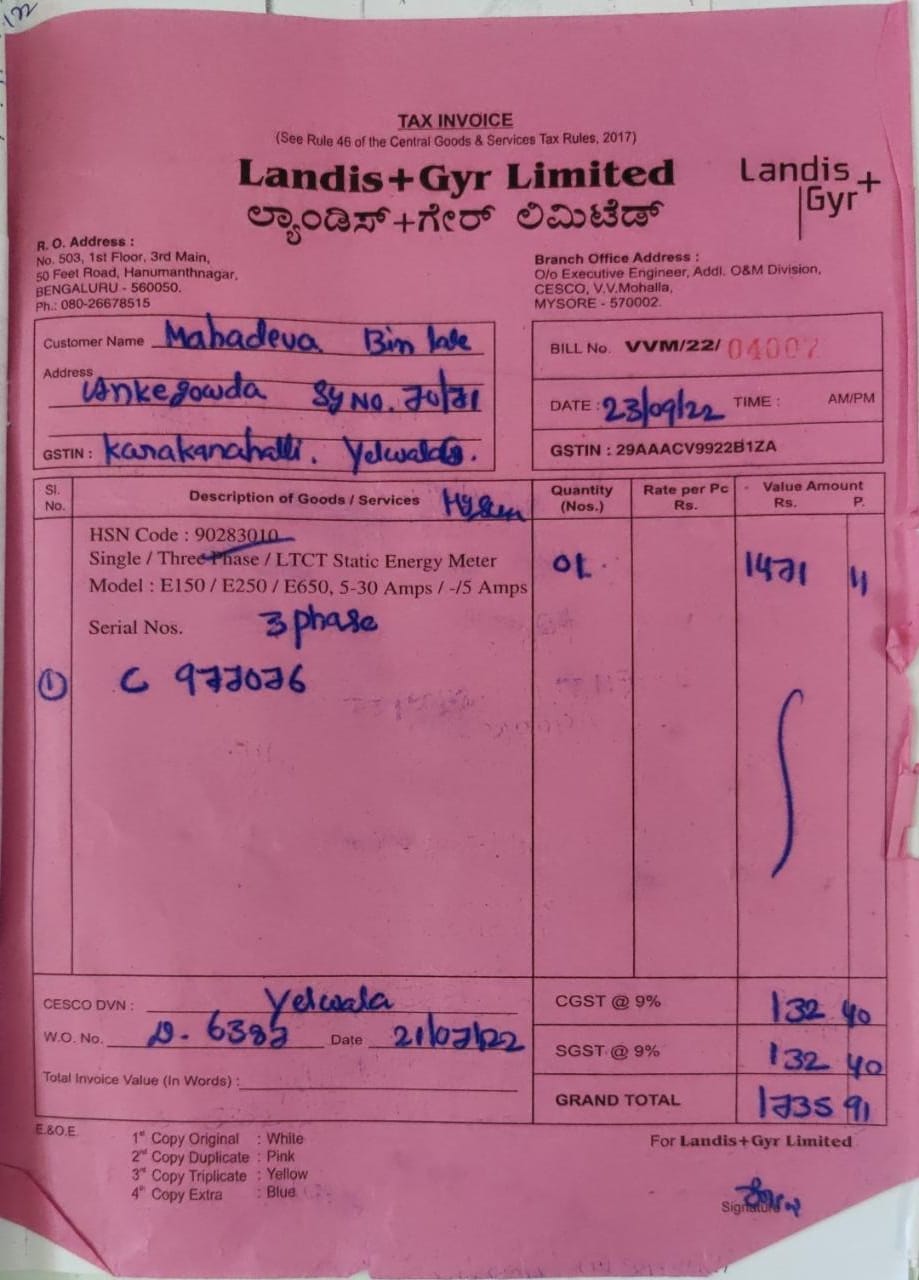 122
TAX INVOICE
(See Rule 46 of the Central Goods & Services Tax Rules, 2017)
Landis+Gyr Limited
Landis+
Gyr
ಲ್ಯಾಂಡಿಸ್+ಗೇರ್ ಲಿಮಿಟೆಡ್
R. O. Address :
No. 503, 1st Floor, 3rd Main,
50 Feet Road, Hanumanthnagar,
BENGALURU - 560050.
Ph.: 080-26678515
Branch Office Address :
O/o Executive Engineer, Addl. O&M Division,
CESCO, V.V.Mohalla,
MYSORE - 570002.
Customer Name Mahadeva Bin late
Address Ankegowda Sy NO. 70/71
GSTIN : Karakanahalli. Yelwala
BILL No. VVM/22/ 04007
DATE : 23/09/22 TIME : AM/PM
GSTIN : 29AAACV9922B1ZA
Sl. No. Description of Goods / Services Quantity (Nos.) Rate per Pc Rs. Value Amount Rs. P.
HSN Code : 90283010
Single / Three Phase / LTCT Static Energy Meter 01. 1471 11
Model : E150 / E250 / E650, 5-30 Amps / -/5 Amps
Serial Nos. 3 phase
① C 977076
CESCO DVN : Yelwala
W.O. No. D. 6387 Date 21/07/22
Total Invoice Value (In Words) :
CGST @ 9% 132 40
SGST @ 9% 132 40
GRAND TOTAL 1735 91
E.&O.E.
1st Copy Original : White
2nd Copy Duplicate : Pink
3rd Copy Triplicate : Yellow
4th Copy Extra : Blue
For Landis+Gyr Limited
Signature